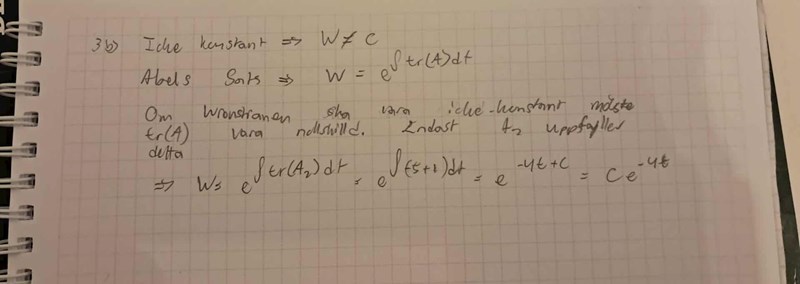 3b) Icke konstant => W ≠ C
Abels Sats => W = e^∫tr(A)dt
Om Wronskianen ska vara icke-konstant måste
tr(A) vara nollskilld. Endast A₂ uppfyller
detta
=> W = e^∫tr(A₂)dt = e^∫(-5+1)dt = e^-4t+C = Ce^-4t